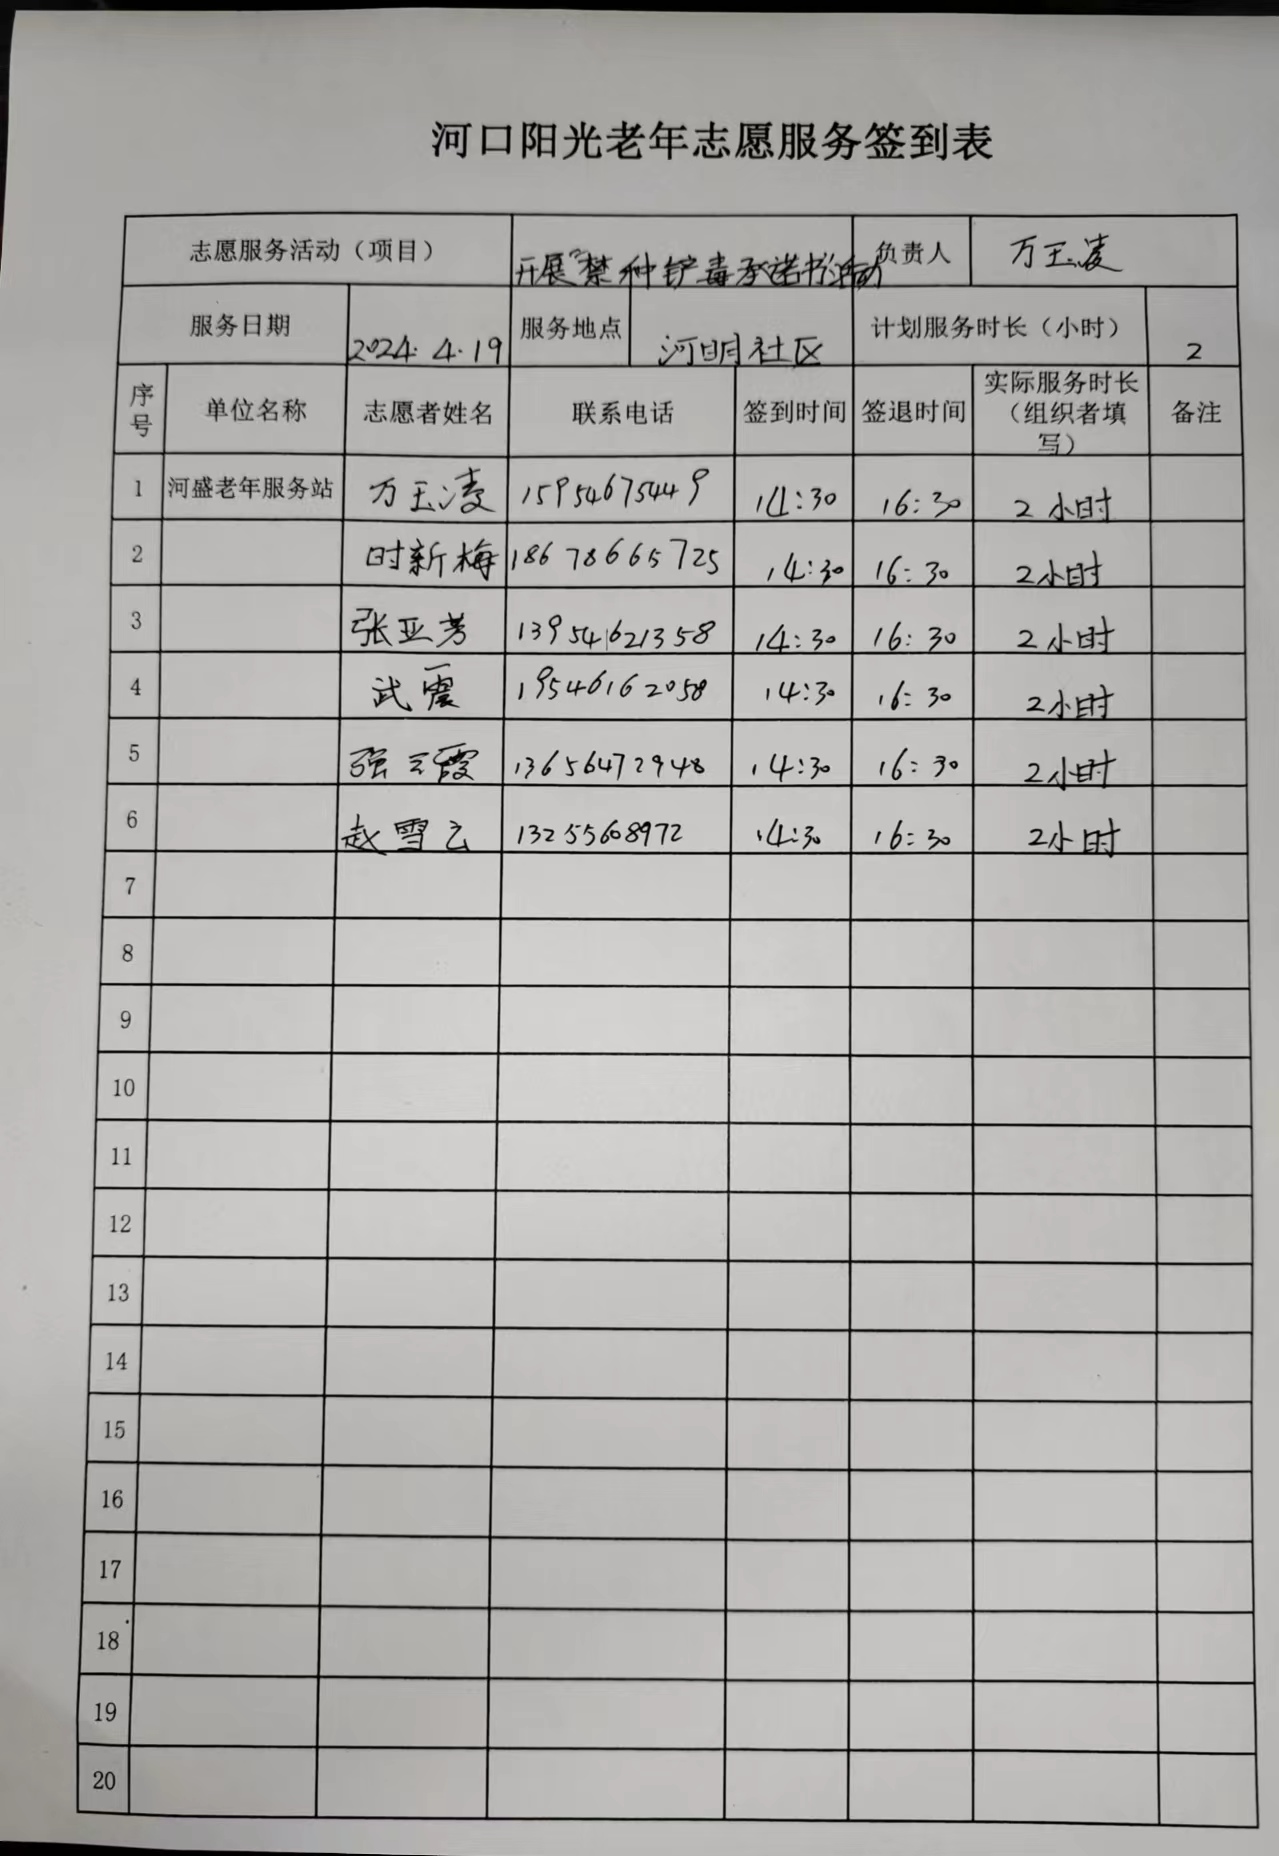 河口阳光老年志愿服务签到表
志愿服务活动（项目） 开展"禁种铲毒承诺书"活动 负责人 万玉凌
服务日期 2024.4.19 服务地点 河明社区 计划服务时长（小时） 2
序号 单位名称 志愿者姓名 联系电话 签到时间 签退时间 实际服务时长（组织者填写） 备注
1 河盛老年服务站 万玉凌 15954675449 14:30 16:30 2小时
2 时新梅 18678665725 14:30 16:30 2小时
3 张亚芳 13954621358 14:30 16:30 2小时
4 武震 19546162058 14:30 16:30 2小时
5 张云霞 13656472948 14:30 16:30 2小时
6 赵雪云 13255608972 14:30 16:30 2小时
7
8
9
10
11
12
13
14
15
16
17
18
19
20